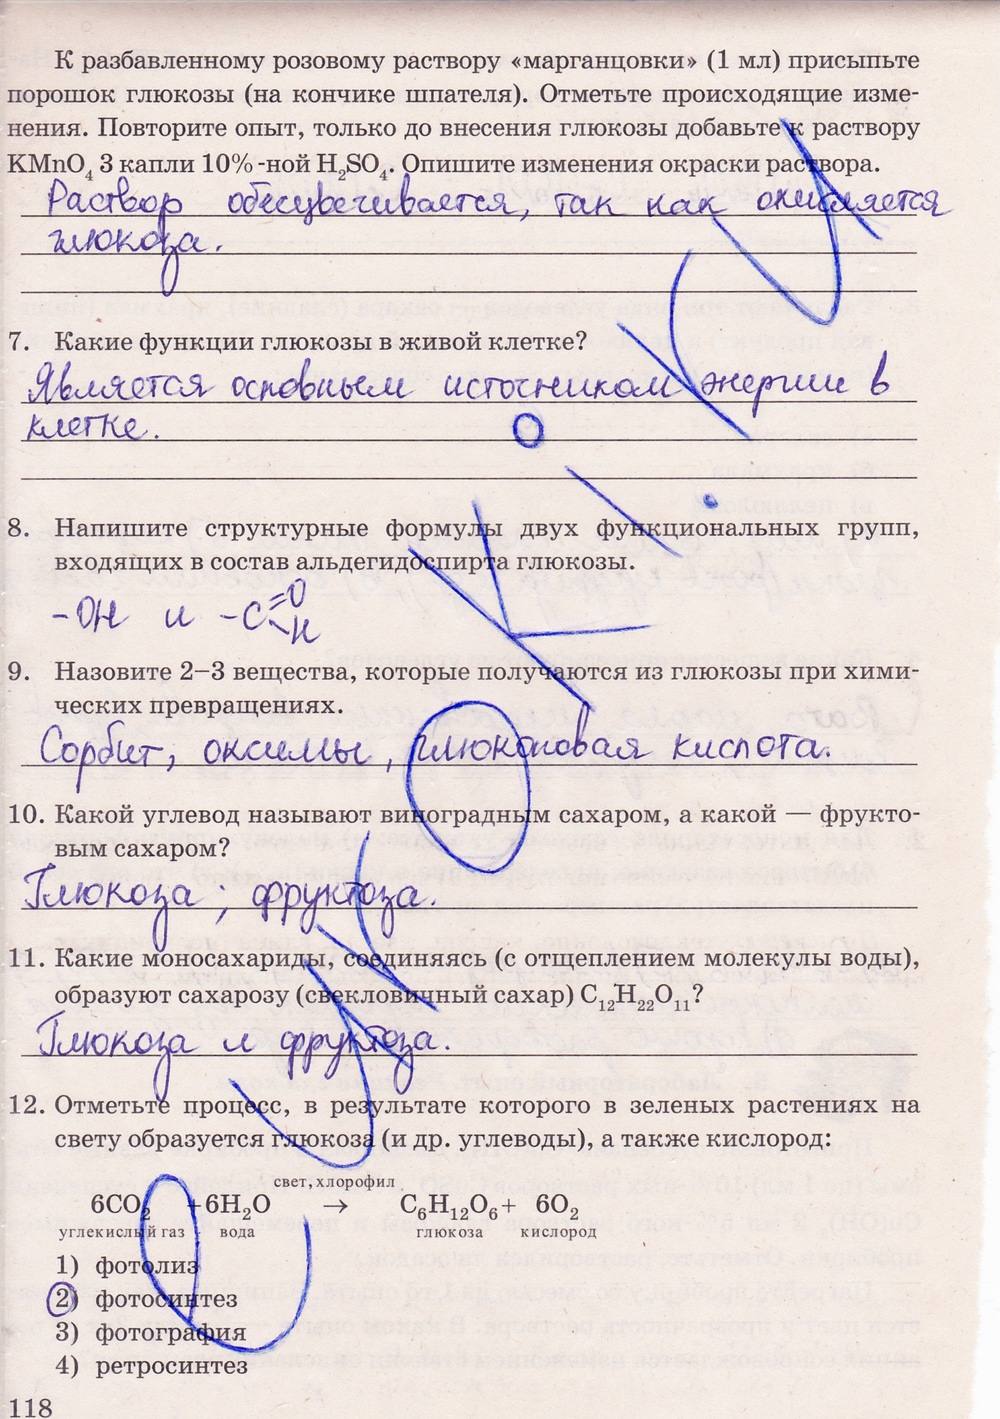 К разбавленному розовому раствору «марганцовки» (1 мл) присыпьте
порошок глюкозы (на кончике шпателя). Отметьте происходящие изме-
нения. Повторите опыт, только до внесения глюкозы добавьте к раствору
KMnO₄ 3 капли 10%-ной H₂SO₄. Опишите изменения окраски раствора.
Раствор обесцвечивается, так как окисляется
глюкоза.
7. Какие функции глюкозы в живой клетке?
Является основным источником энергии в
клетке.
8. Напишите структурные формулы двух функциональных групп,
входящих в состав альдегидоспирта глюкозы.
-OH и -C=O
-H
9. Назовите 2–3 вещества, которые получаются из глюкозы при хими-
ческих превращениях.
Сорбит, оксимы, глюконовая кислота.
10. Какой углевод называют виноградным сахаром, а какой — фрукто-
вым сахаром?
Глюкоза; фруктоза.
11. Какие моносахариды, соединяясь (с отщеплением молекулы воды),
образуют сахарозу (свекловичный сахар) C₁₂H₂₂O₁₁?
Глюкоза и фруктоза.
12. Отметьте процесс, в результате которого в зеленых растениях на
свету образуется глюкоза (и др. углеводы), а также кислород:
свет, хлорофил
6CO₂ + 6H₂O → C₆H₁₂O₆ + 6O₂
углекислый газ вода глюкоза кислород
1) фотолиз
2) фотосинтез
3) фотография
4) ретросинтез
118